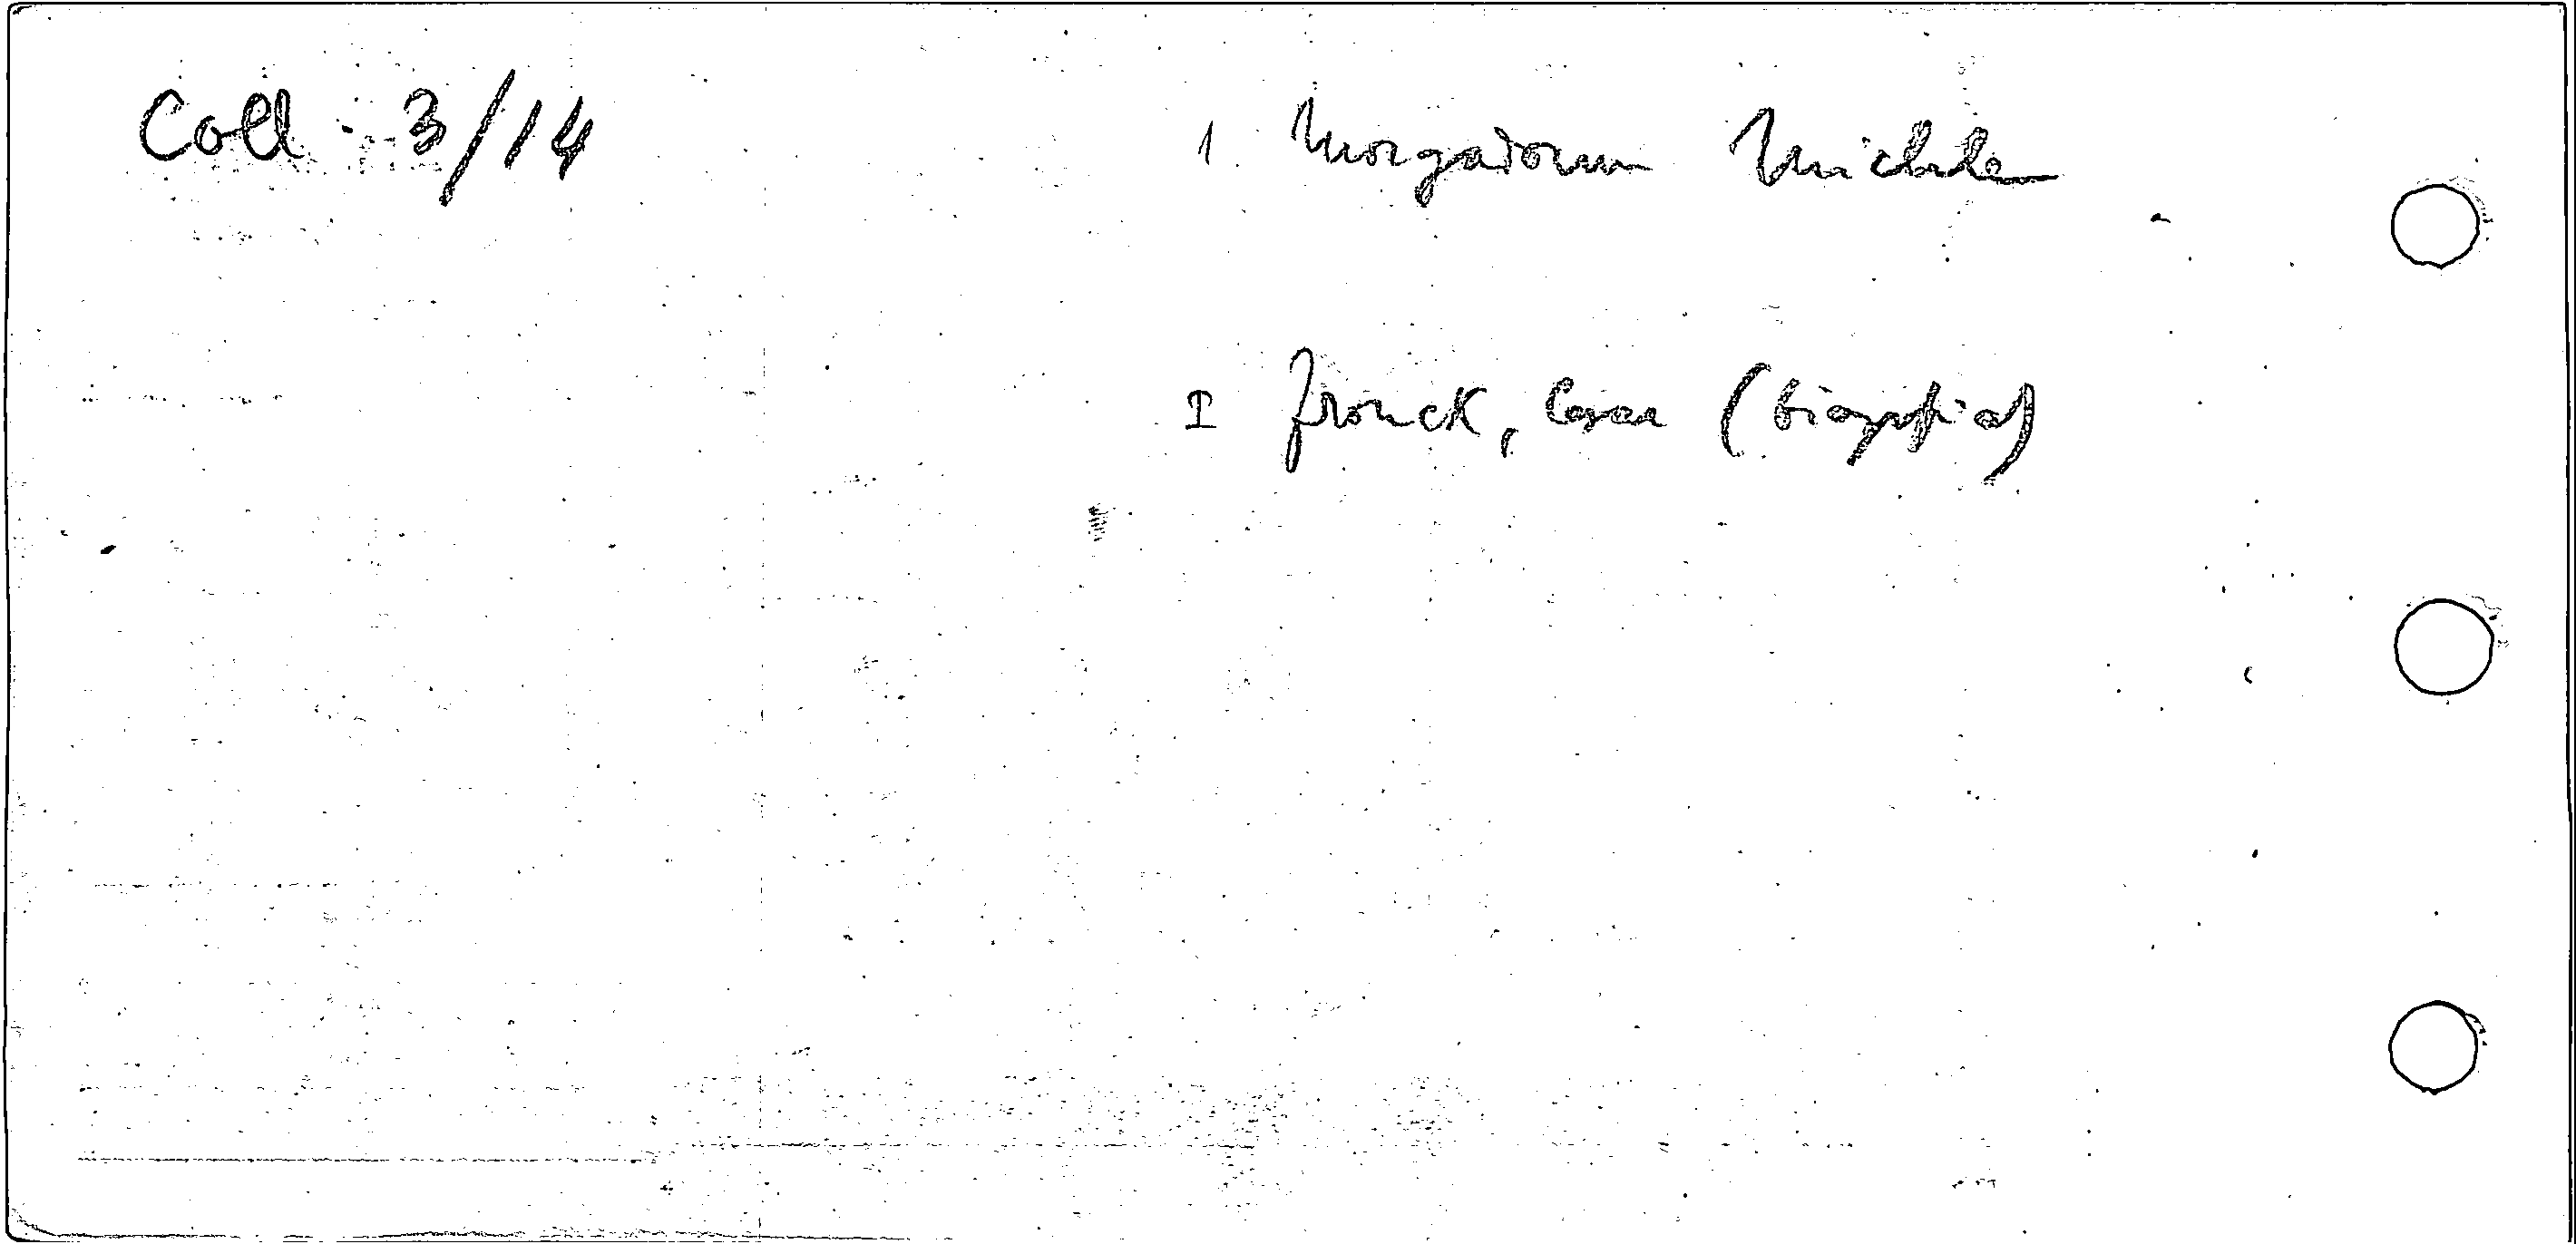 Coll - 3/14
1. Morgadorum Michele
I Franck, Cesar (biografia)